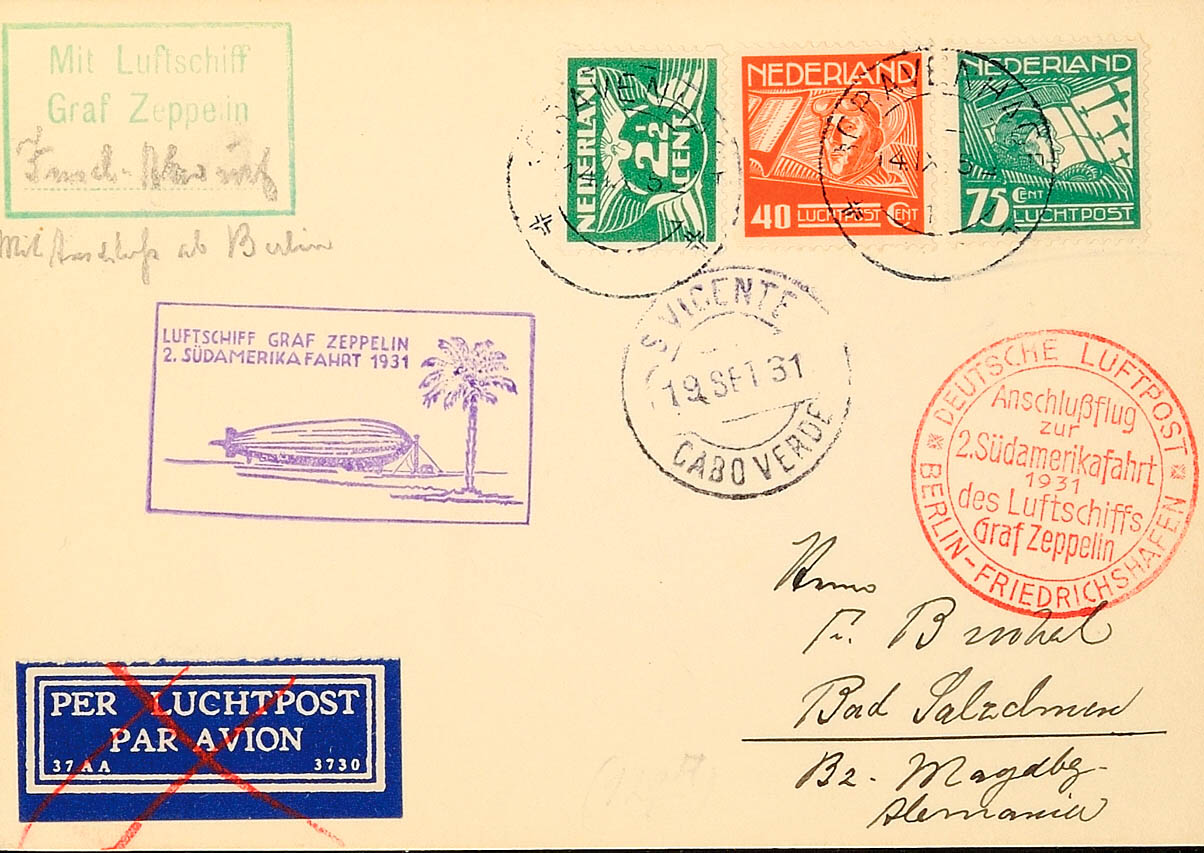 Mit Luftschiff
Graf Zeppelin
Mit Anschluß ab Berlin
NEDERLAND
2½
CENT
NEDERLAND
40 LUCHTPOST CENT
NEDERLAND
75 CENT
LUCHTPOST
'S GRAVENHAGE
'S GRAVENHAGE
LUFTSCHIFF GRAF ZEPPELIN
2. SÜDAMERIKAFAHRT 1931
S. VICENTE
19 SET 31
CABO VERDE
DEUTSCHE LUFTPOST
Anschlußflug
zur
2. Südamerikafahrt
1931
des Luftschiffs
Graf Zeppelin
BERLIN-FRIEDRICHSHAFEN
Herrn
Fr.
Bad Salzelmen
Bz. Magdbg
Alemania
PER LUCHTPOST
PAR AVION
37 A A 3730